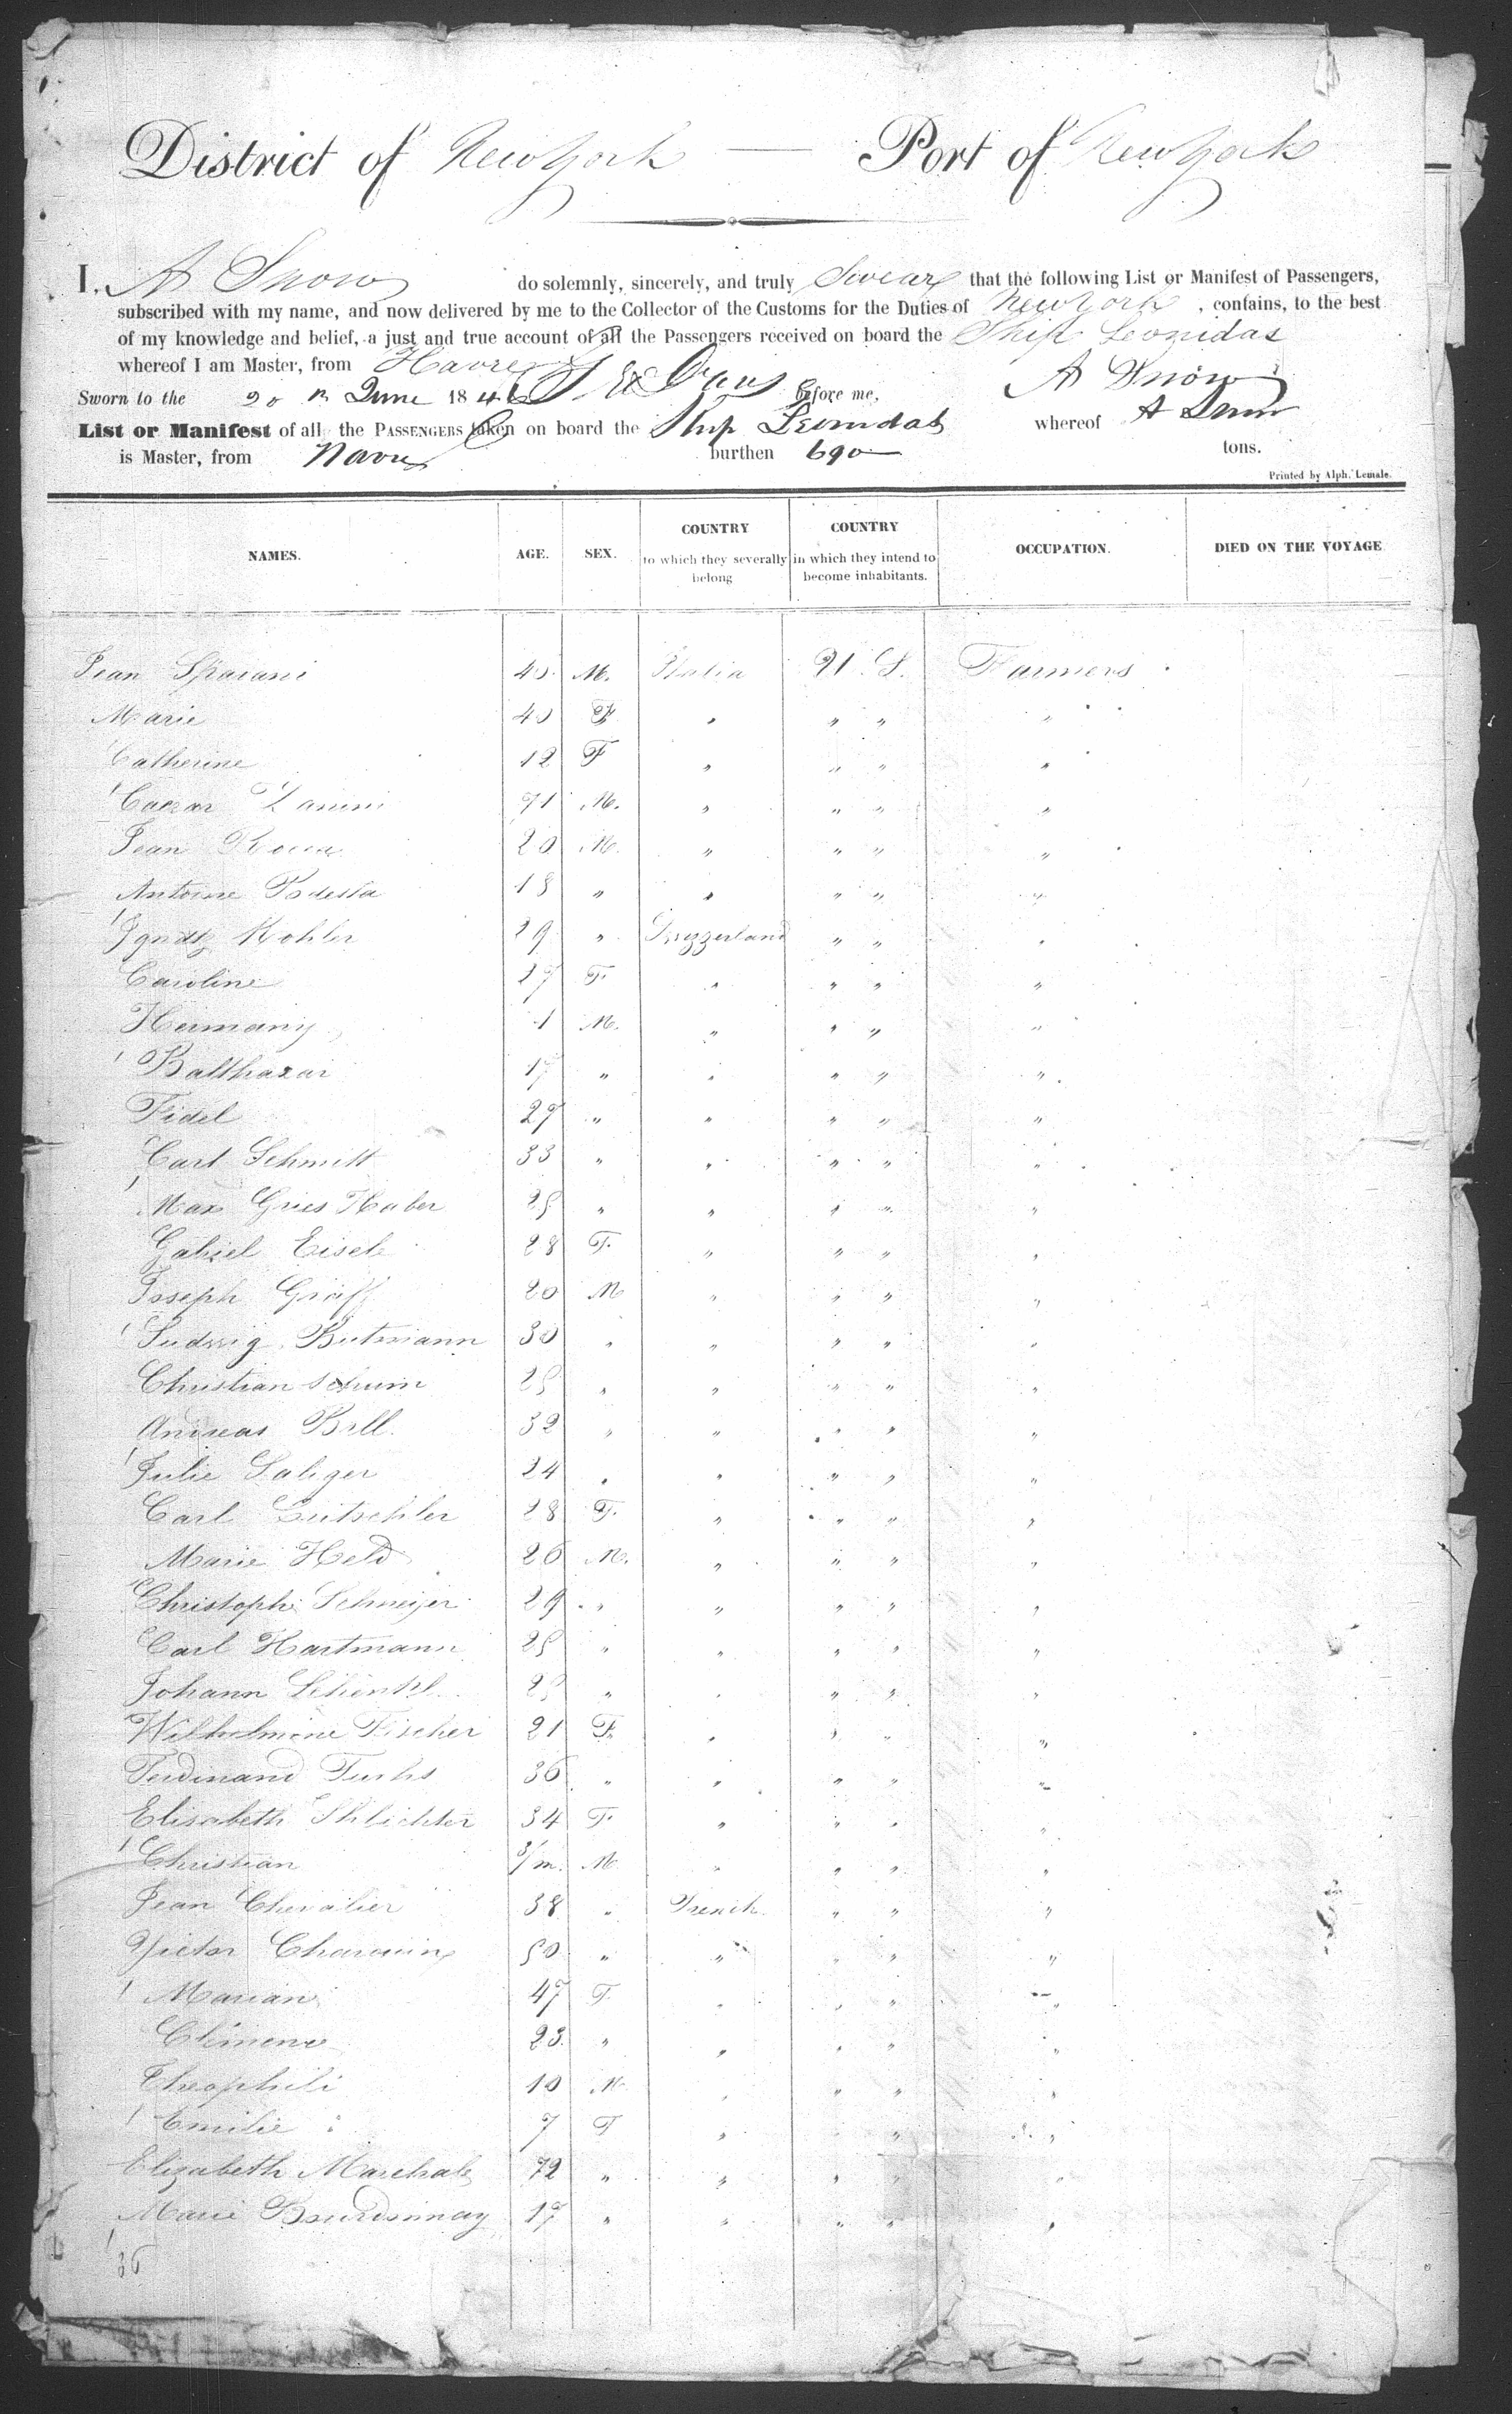 District of New York — Port of New York
I, A Snow do solemnly, sincerely, and truly Swear that the following List or Manifest of Passengers,
subscribed with my name, and now delivered by me to the Collector of the Customs for the Duties of New York , contains, to the best
of my knowledge and belief, a just and true account of all the Passengers received on board the Ship Leonidas
whereof I am Master, from Havre
A Snow
Sworn to the 20 June 184 before me,
List or Manifest of all the PASSENGERS taken on board the Ship Leonidas whereof A Snow
is Master, from Havre burthen 690 tons.
Printed by Alph. Lemale.
NAMES. AGE. SEX. COUNTRY to which they severally belong COUNTRY in which they intend to become inhabitants. OCCUPATION. DIED ON THE VOYAGE
Jean 40 M. Italia U. S. Farmers
Marie 40 F " " " "
Catherine 12 F " " " "
Caesar Zanini M. " " " "
Jean Rocca 20 M. " " " "
Antoine Podesta 18 " " " " "
Ignatz Kohler 29 " Swizzerland " " "
Caroline 27 F. " " " "
Hermany 1 M. " " " "
Balthazar 17 " " " " "
Fidel 27 " " " " "
Carl Schmitt 33 " " " " "
Max Gries Haber 25 " " " " "
Gabriel Eisele 28 F. " " " "
Joseph Graff 20 M " " " "
Ludwig Butmann 30 " " " " "
Christian Schum 25 " " " " "
Andreas Bell 32 " " " " "
Julie Saliger 24 " " " " "
Carl 28 F. " " " "
Marie Held 26 M. " " " "
Christoph 29 " " " " "
Carl Hartmann 25 " " " " "
Johann Schenkl 25 " " " " "
Wilhelmine Fischer 21 F. " " " "
Ferdinand Fuchs 36 " " " " "
Elisabeth Schlichter 34 F. " " " "
Christian 3/m. M. " " " "
Jean Chevalier 38 " French " " "
Victor 50 " " " " "
Marian 47 F. " " " "
Clemence 23 " " " " "
Theophili 10 M. " " " "
Emilie 7 F " " " "
Elizabeth Marchal 72 " " " " "
Marie 17 " " " " "
36